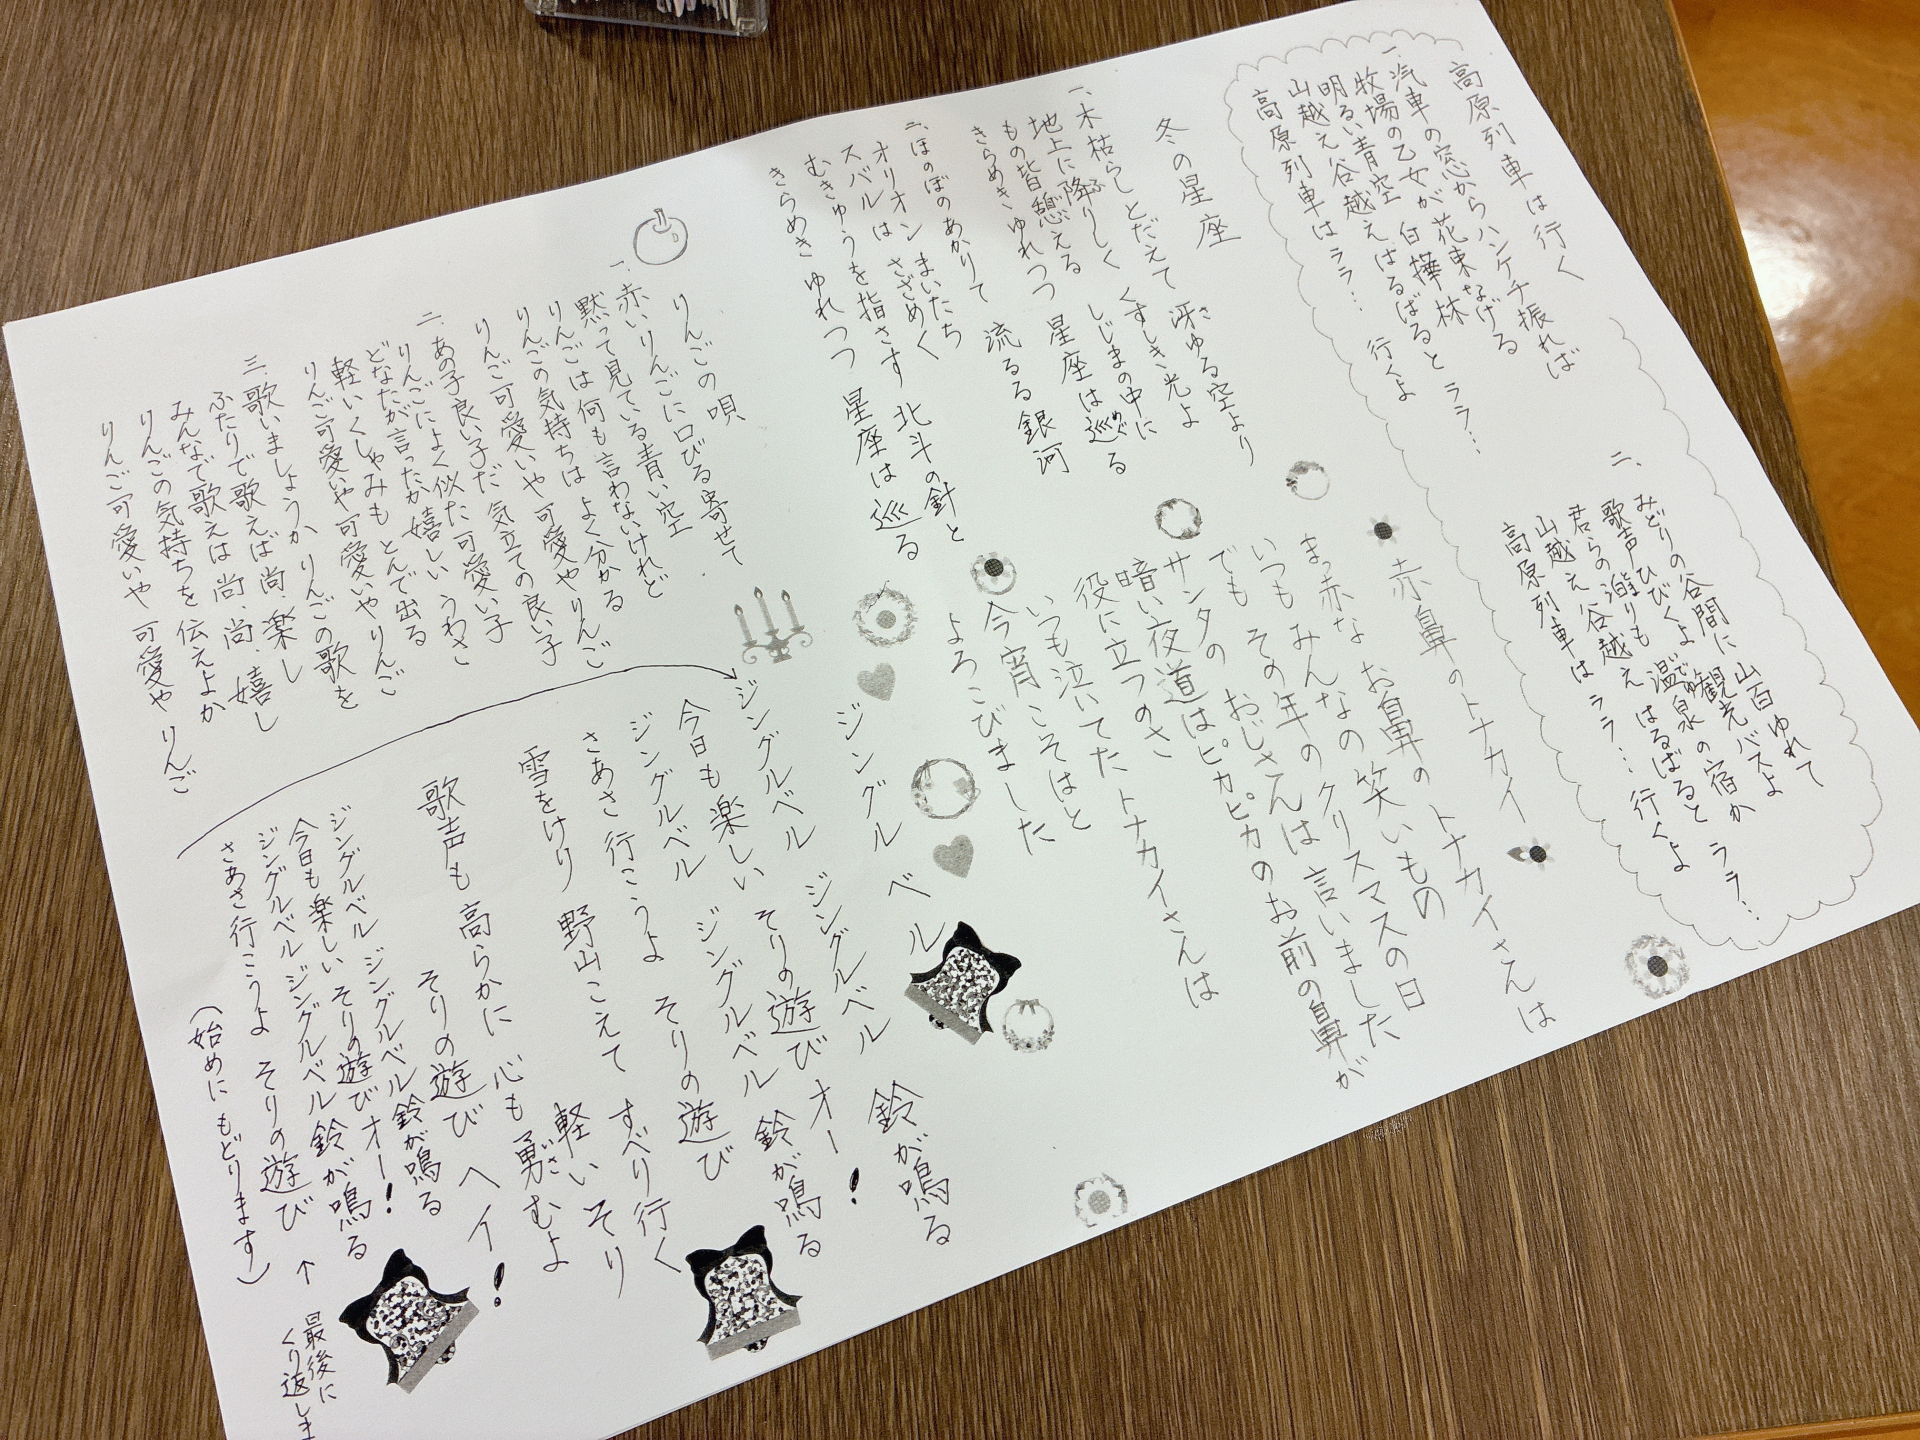 高原列車は行く
一、汽車の窓からハンケチ振れば
牧場の乙女が 花束なげる
明るい青空 白樺林
山越え谷越えはるばると ララ…
高原列車はララ… 行くよ
二、
みどりの谷間に 山百ゆれて
歌声ひびくよ 観光バスよ
君らの溜りも 温泉の宿か
山越え谷越え はるばると ララ…
高原列車は ララ… 行くよ
冬の星座
一、木枯らしとだえて 冴ゆる空より
さ
地上に降りしく くすしき光よ
ふ
もの皆憩える しじまの中に
きらめきゆれつつ 星座は巡る
めぐ
二、ほのぼのあかりて 流るる銀河
オリオン まいたち
スバルは さざめく
むきゅうを指さす 北斗の針と
きらめき ゆれつつ 星座は巡る
赤鼻のトナカイ
まっ赤な お鼻の トナカイさんは
いつもみんなの 笑いもの
でも その年の クリスマスの日
サンタの おじさんは 言いました
暗い夜道は ピカピカの お前の鼻が
役に立つのさ
いつも泣いてた トナカイさんは
今宵こそはと
よろこびました
りんごの唄
一、赤いりんごに 口びる寄せて
黙って見ている青い空
りんごは何も 言わないけれど
りんごの気持ちは よく分かる
りんご可愛いや 可愛やりんご
二、あの子良い子だ 気立ての良い子
りんごによく似た 可愛い子
どなたが言ったか 嬉しいうわさ
軽いくしゃみも とんで出る
りんご可愛いや 可愛いやりんご
三、歌いましょうか りんごの歌を
ふたりで歌えば 尚、楽し
みんなで歌えば 尚、尚、嬉し
りんごの気持ちを 伝えよか
りんご可愛いや 可愛や りんご
ジングル ベル
ジングルベル ジングルベル 鈴が鳴る
今日も楽しい そりの遊び オー!
ジングルベル ジングルベル 鈴が鳴る
さあさ 行こうよ そりの遊び
雪をけり 野山こえて すべり行く
軽い そり
歌声も 高らかに 心も 勇むよ
いさ
そりの遊び ヘイ!
ジングルベル ジングルベル 鈴が鳴る
今日も楽しい そりの遊びオー!
ジングルベル ジングルベル 鈴が鳴る
さあさ 行こうよ そりの遊び
(始めに もどります)
↑ 最後に
くり返しま